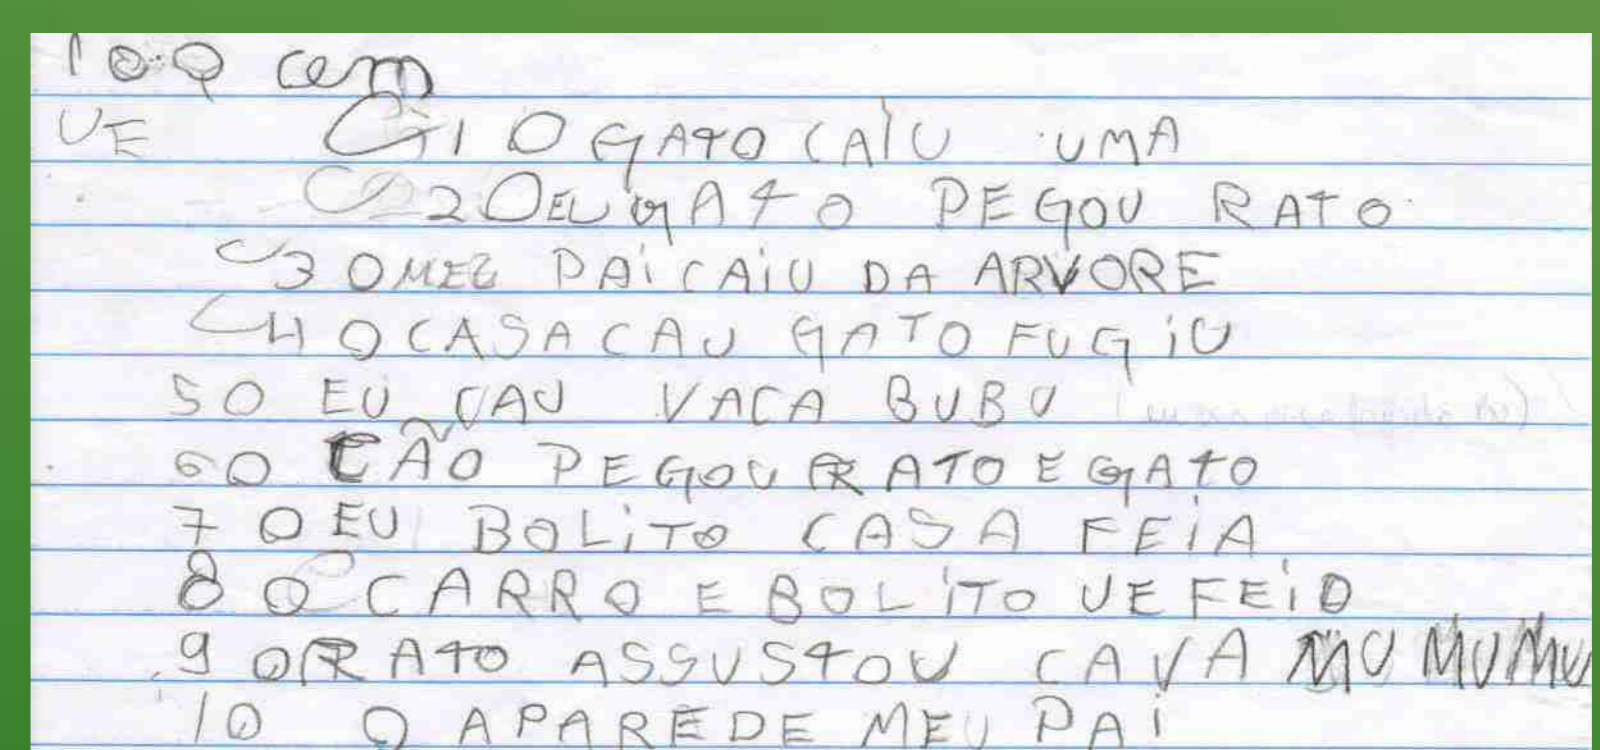 100 cem
UE 1 O GATO CAIU UMA
2 O EU GATO PEGOU RATO
3 O MEU PAI CAIU DA ARVORE
4 O CASA CAU GATO FUGIU
5 O EU CAU VACA BUBU
6 O CÃO PEGOU RATO E GATO
7 O EU BOLITO CASA FEIA
8 O CARRO E BOLITO UE FEIO
9 O RATO ASSUSTOU CAVA MU MUMU
10 O APAREDE MEU PAI